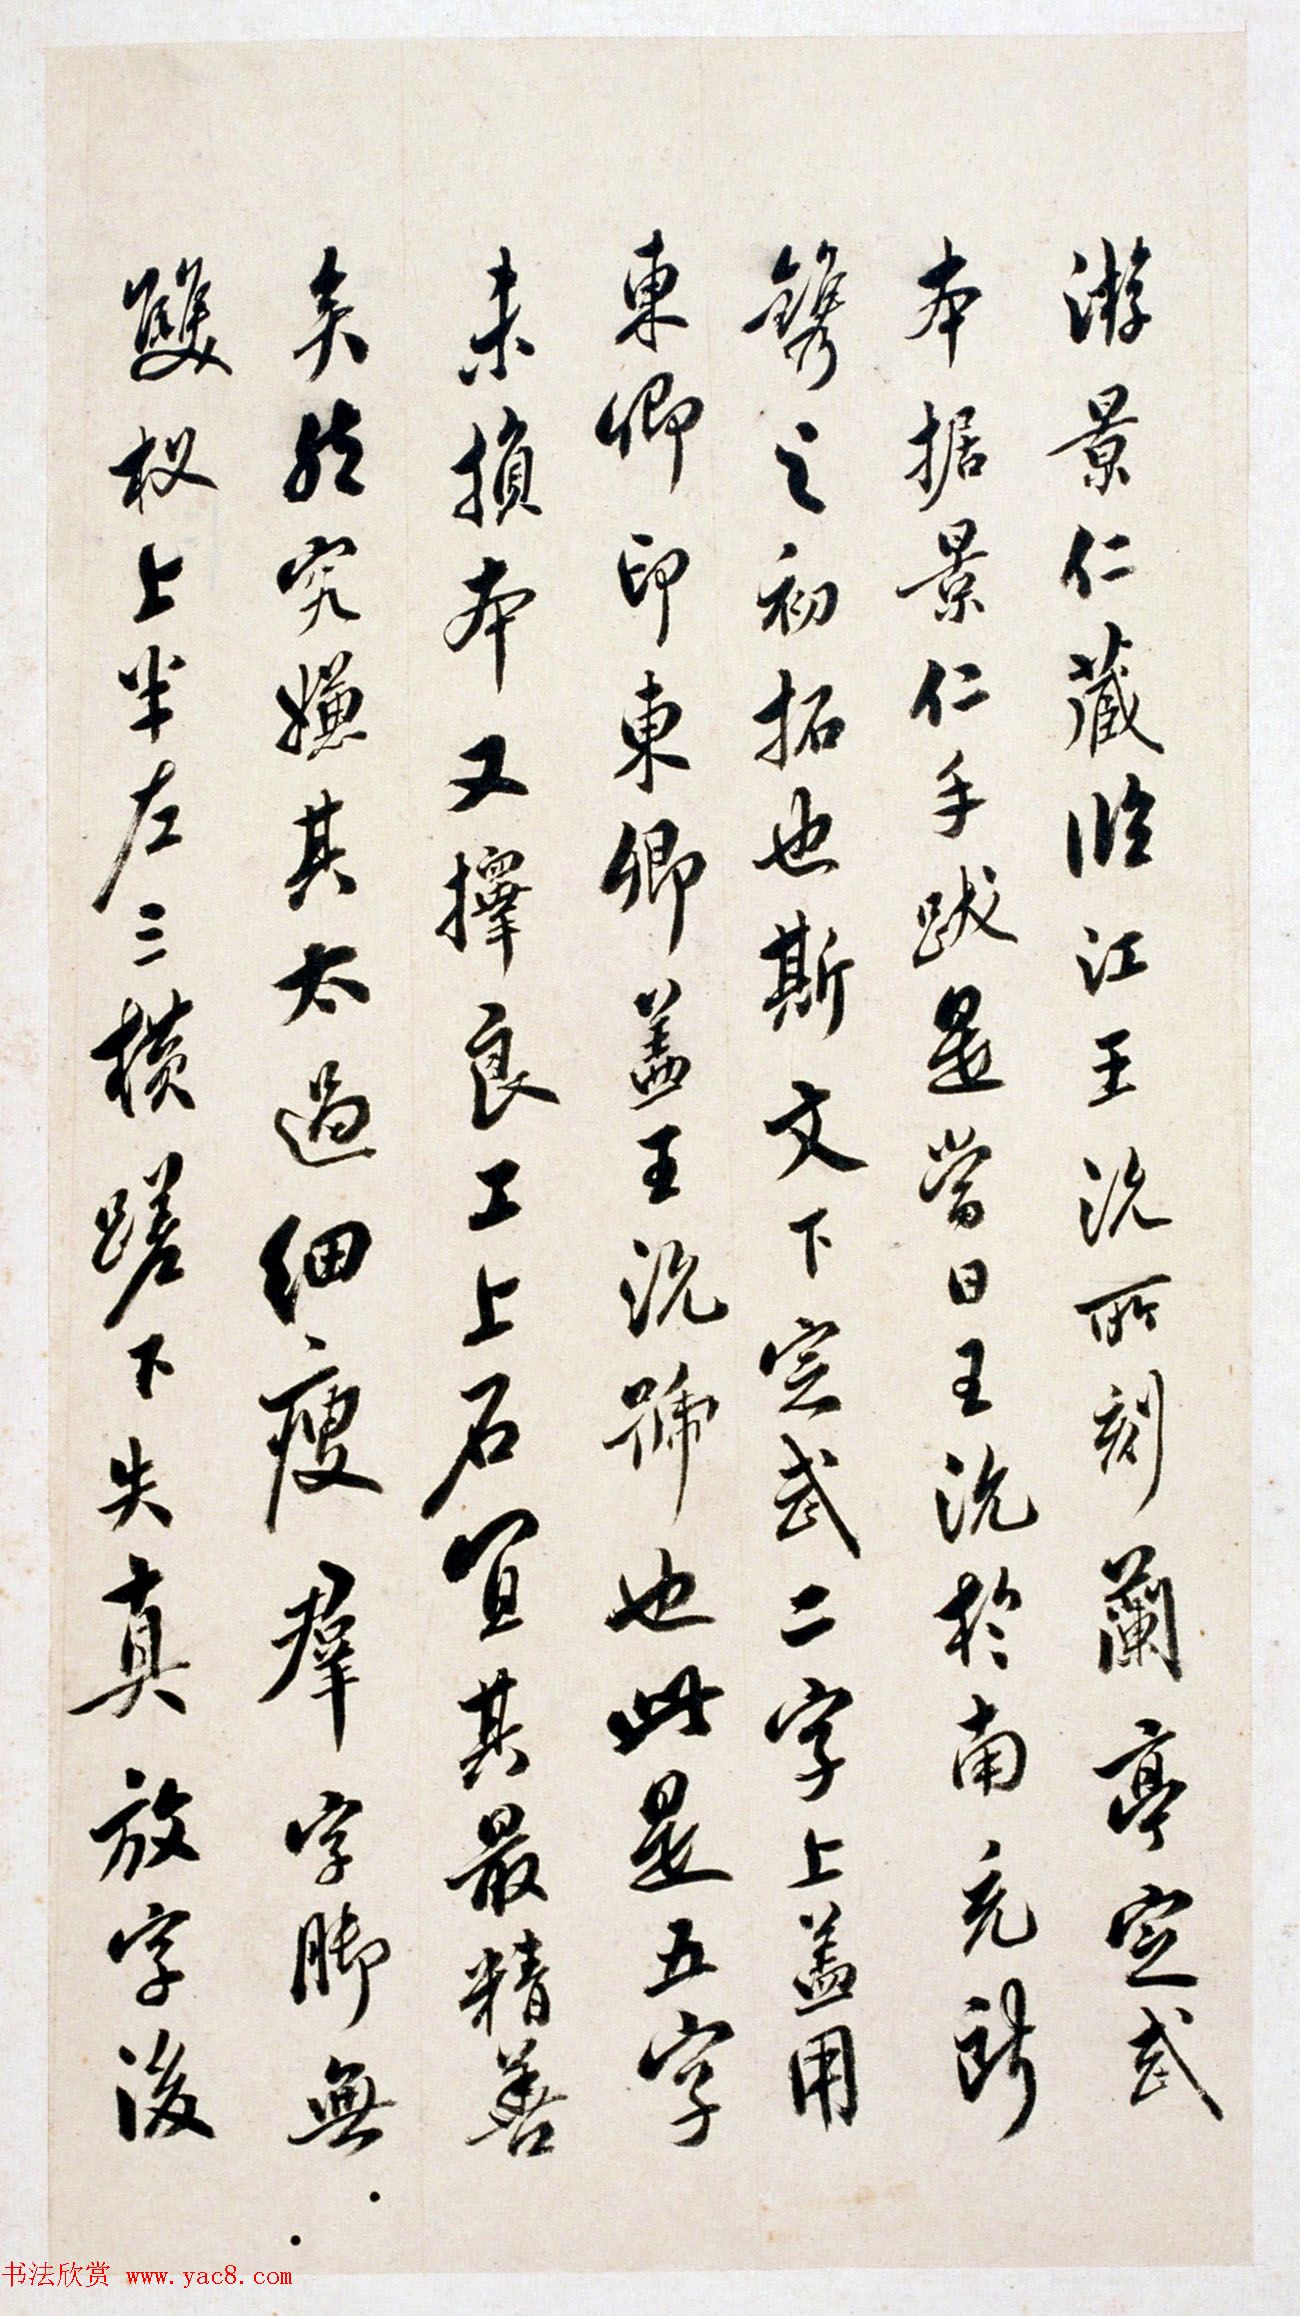 游景仁藏臨江王沇所刻蘭亭定武
本据景仁手跋是當日王沇於南充所
鐫之初拓也斯文下定武二字上蓋用
東卿印東卿蓋王沇號也此是五字
未損本又擇良工上石宜其最精善
矣然究嫌其太過細瘦羣字脚無
雙杈上半左三橫蹉下失真放字後
书法欣赏 www.yac8.com